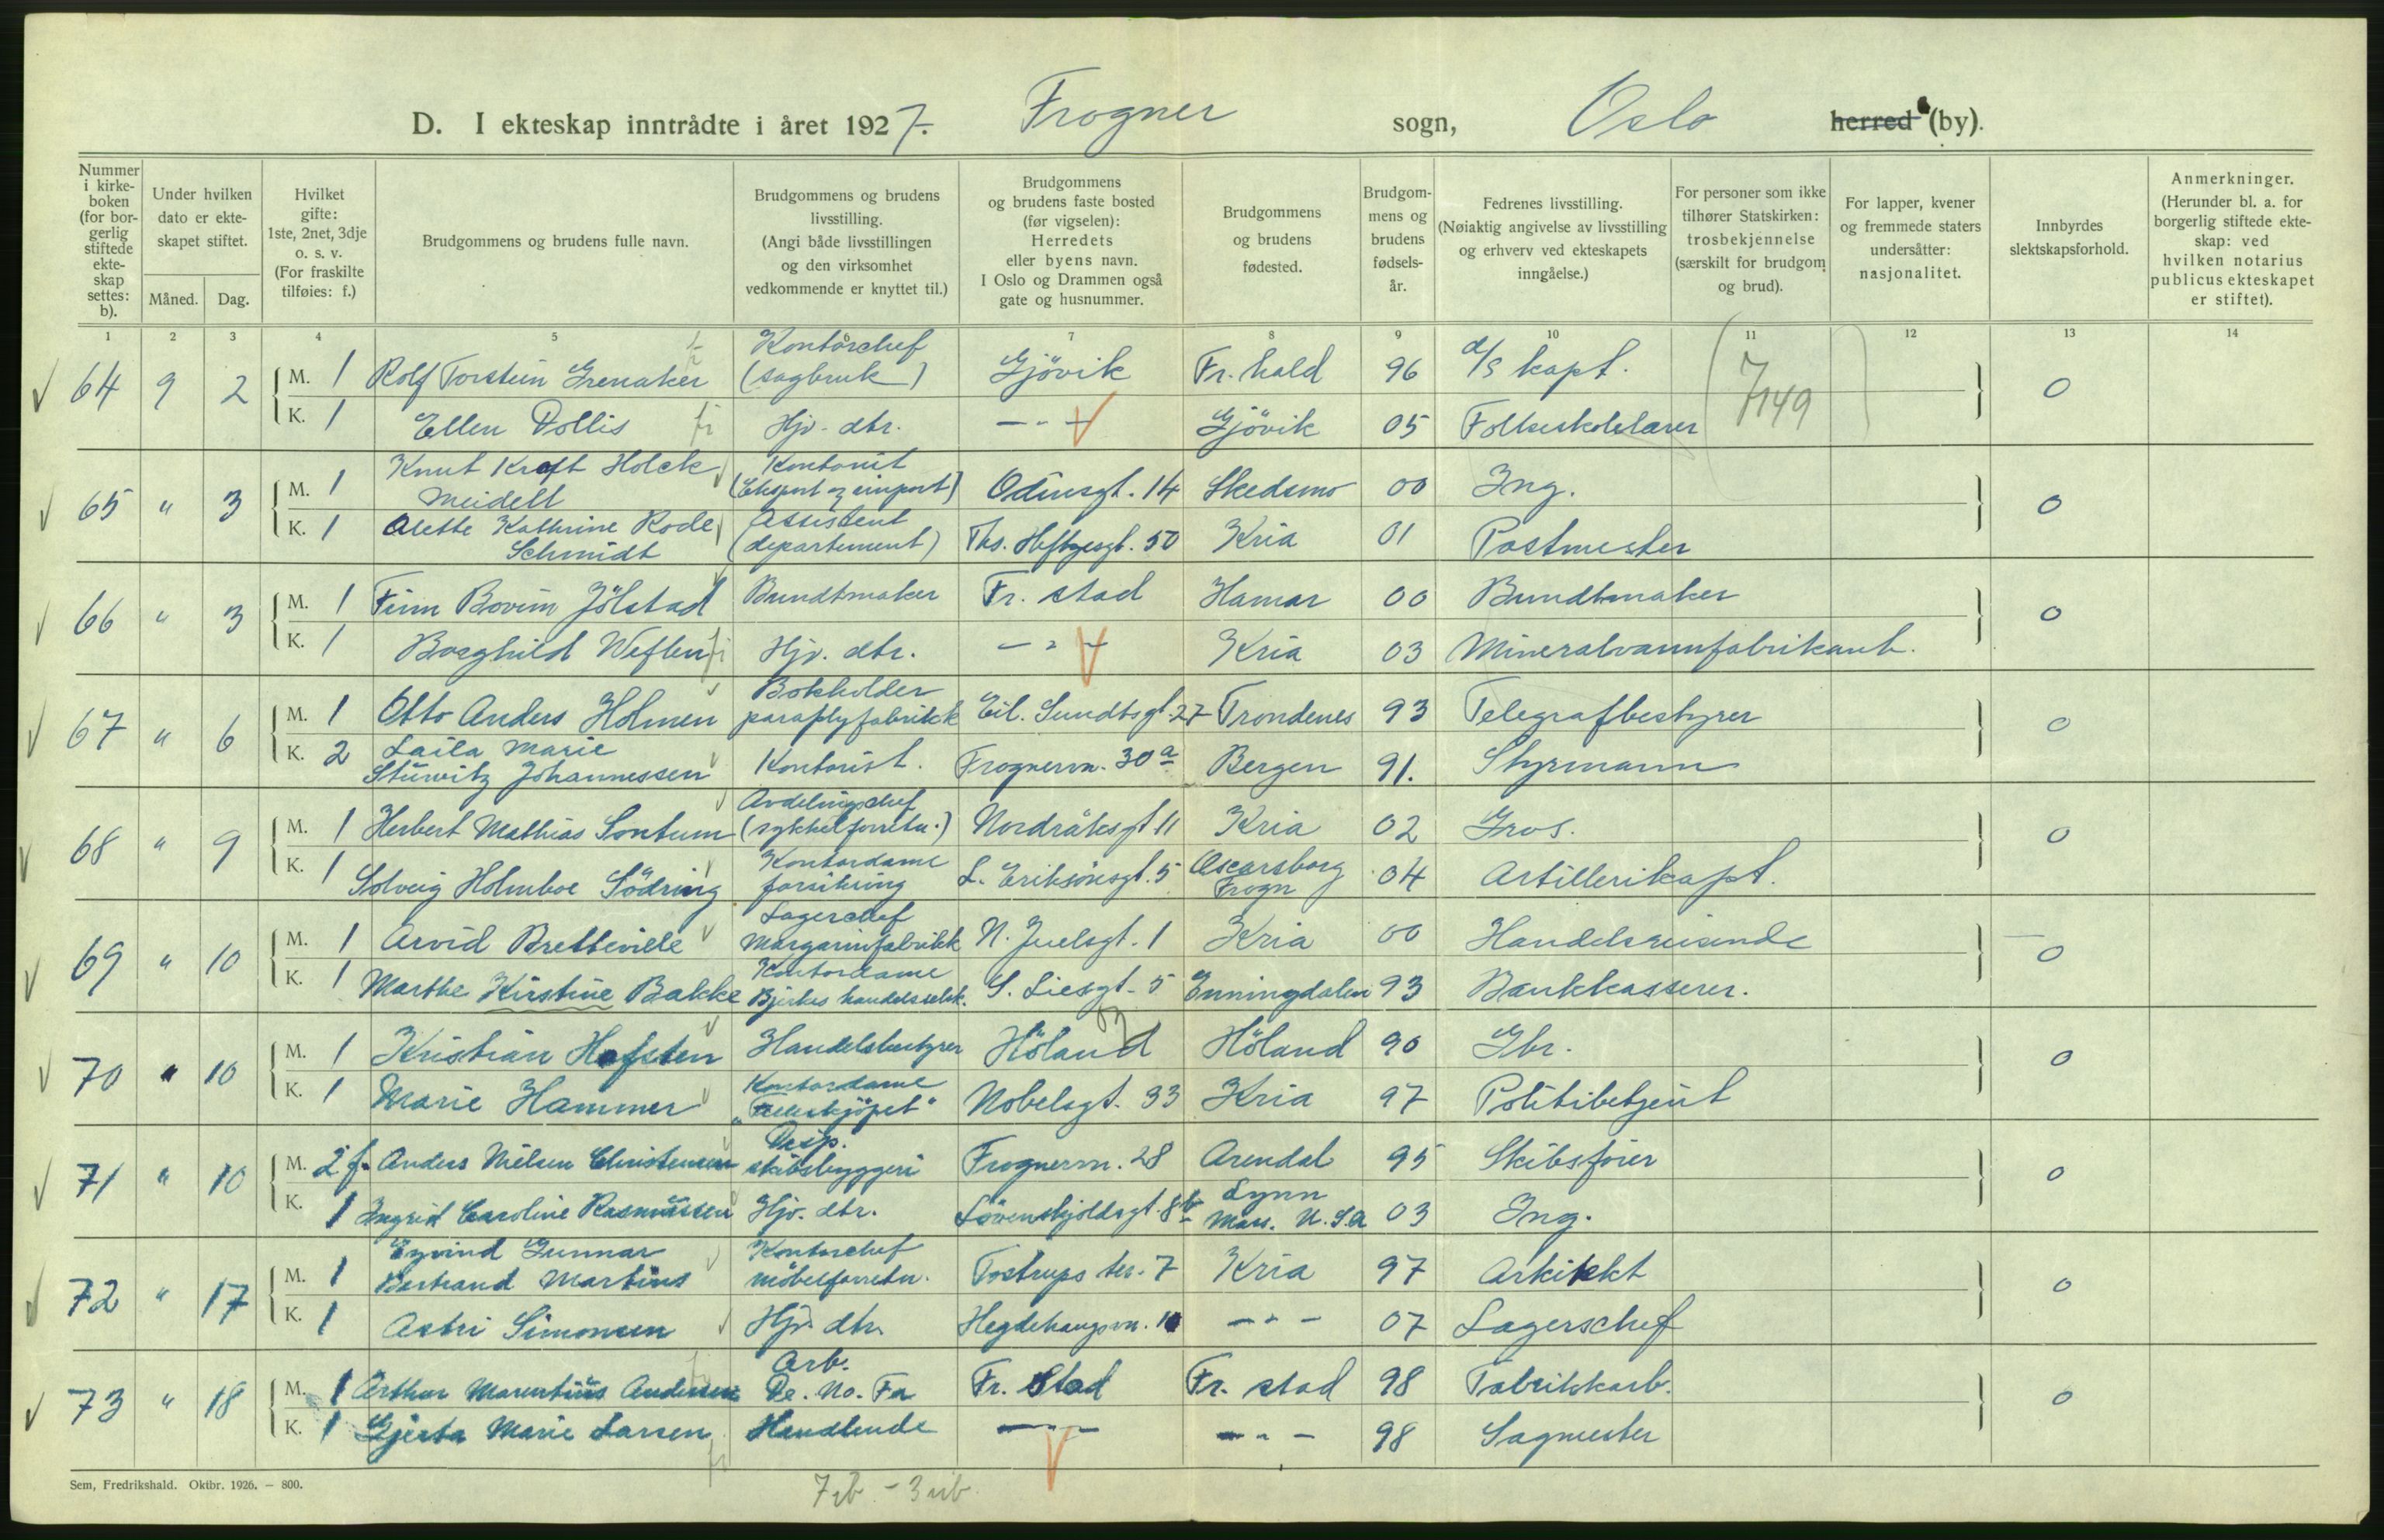 D. I ekteskap inntrådte i året 1927. Frogner sogn, Oslo herred (by).
Nummer i kirke-boken (for bor-gerlig stiftede ekte-skap settes: b).
Under hvilken dato er ekte-skapet stiftet.
Måned. Dag.
Hvilket gifte: 1ste, 2net, 3dje o. s. v. (For fraskilte tilføies: f.)
Brudgommens og brudens fulle navn.
Brudgommens og brudens livsstilling. (Angi både livsstillingen og den virksomhet vedkommende er knyttet til.)
Brudgommens og brudens faste bosted (før vigselen): Herredets eller byens navn. I Oslo og Drammen også gate og husnummer.
Brudgommens og brudens fødested.
Brudgom-mens og brudens fødsels-år.
Fedrenes livsstilling. (Nøiaktig angivelse av livsstilling og erhverv ved ekteskapets inngåelse.)
For personer som ikke tilhører Statskirken: trosbekjennelse (særskilt for brudgom og brud).
For lapper, kvener og fremmede staters undersåtter: nasjonalitet.
Innbyrdes slektskapsforhold.
Anmerkninger. (Herunder bl. a. for borgerlig stiftede ekte-skap: ved hvilken notarius publicus ekteskapet er stiftet).
1 2 3 4 5 7 8 9 10 11 12 13 14
64 9 2 M. 1 Rolf Torstein Grenaker Kontorchef (sagbruk) Gjövik Fr. hald 96 d/s kapt. 7149 0
K. 1 Ellen Dollis Hjv. dtr. - " - Gjövik 05 Folkeskolelærer
65 " 3 M. 1 Knut Kraft Holck Meidell Kontorist (Eksport og import) Odinsgt. 14 Skedsmo 00 Ing. 0
K. 1 Alette Kathrine Rode Schmidt Assistent (departement) Ths. Heftyesgt. 50 Kria 01 Postmester
66 " 3 M. 1 Finn Bovim Jölstad Bundtmaker Fr. stad Hamar 00 Bundtmaker 0
K. 1 Borghild Weflen Hjv. dtr. - " - Kria 03 Mineralvannfabrikant.
67 " 6 M. 1 Otto Anders Holmen Bokholder paraplyfabrikk Eil. Sundtsgt. 27 Trondenes 93 Telegrafbestyrer 0
K. 2 Laila Marie Stüwitz Johannessen Kontorist. Frognervn. 30a Bergen 91. Styrmann
68 " 9 M. 1 Herbert Mathias Sontum Avdelingschef (sykkelforretn.) Nordråksgt 11 Kria 02 Gros. 0
K. 1 Solveig Holmboe Södring Kontordame forsikring L. Eriksönsgt. 5 Oscarsborg Frogn 04 Artillerikapt.
69 " 10 M. 1 Arvid Bretteville Lagerchef Margarinfabrikk N. Juelsgt. 1 Kria 00 Handelsreisende 0
K. 1 Marthe Kirstine Bakke Kontordame Bjerkes handelsselsk. S. Liesgt. 5 Enningdalen 93 Bankkasserer.
70 " 10 M. 1 Kristian Hafsten Handelsbestyrer Höland Höland 90 Gbr. 0
K. 1 Marie Hammer Kontordame "Felleskjöpet" Nobelsgt. 33 Kria 97 Politibetjent
71 " 10 M. 2 f. Anders Nielsen Christensen Disp. skibsbyggeri Frognervn. 28 Arendal 95 Skibsförer 0
K. 1 Ingrid Caroline Rasmussen Hjv. dtr. Lövenskjoldsgt. 8b Lynn Mass. U. S. A 03 Ing.
72 " 17 M. 1 Eyvind Gunnar Bertrand Martins Kontorchef möbelforretn. Tostrups ter. 7 Kria 97 Arkitekt 0
K. 1 Astri Simonsen Hjv. dtr. Hegdehaugsvn. - " - 07 Lagerschef
73 " 18 M. 1 Arthur Marentius Andersen Arb. De. No. Fa Fr. Stad Fr. stad 98 Fabrikkarb. 0
K. 1 Gjerta Marie Larsen Handlende - " - - " - 98 Sagmester
Sem, Fredrikshald. Oktbr. 1926. — 800.
7 ib - 3 uib